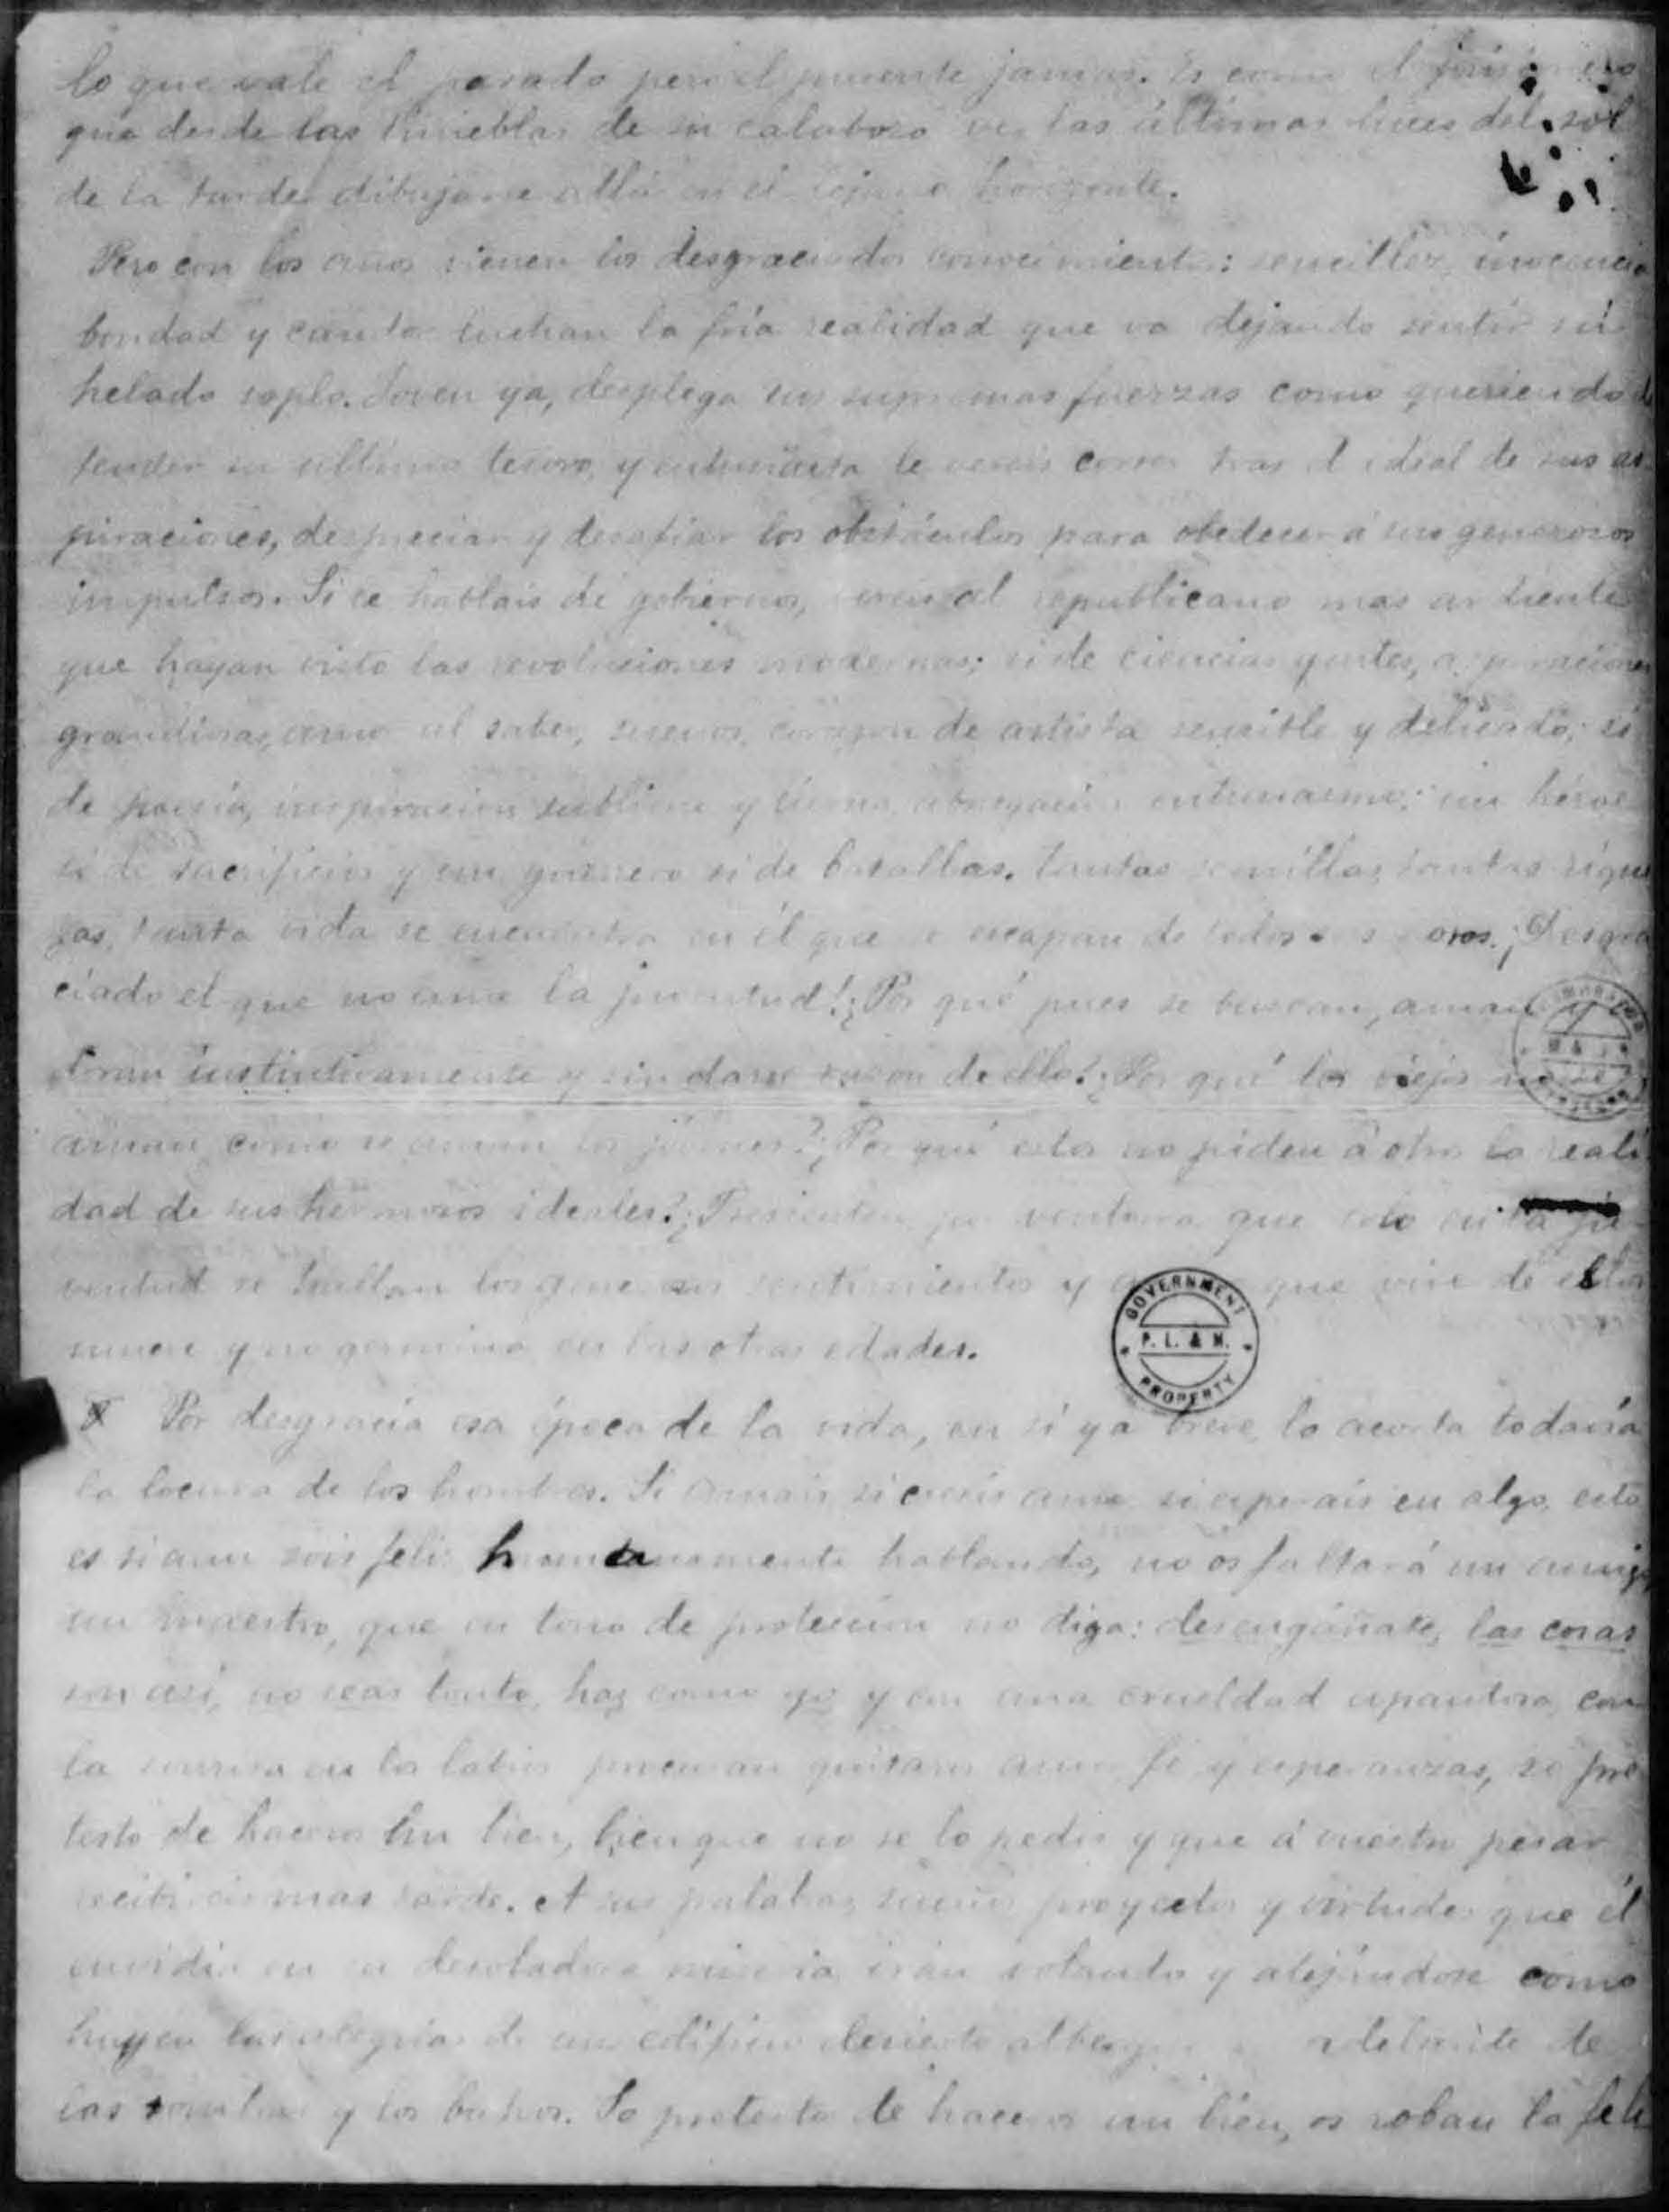 lo que vale el pasado pero el presente jamas. Es como el prisionero
que desde las tinieblas de su calabozo ve las últimas luces del sol
de la tarde dibujarse allá en el lejano horizonte.
Pero con los años vienen los desgraciados conocimientos: sencillez, inocencia
bondad y luchan la fría realidad que va dejando sentir su
helado soplo. Joven ya, desplega sus supremas fuerzas como queriendo de
fender su ultimo tesoro, y entusiasta le vereis correr tras el ideal de sus as
piraciones, despreciar y desafiar los obstáculos para obedecer á sus generosos
impulsos. Si le hablais de gobiernos, vereis al republicano mas ardiente
que hayan visto las revoluciones modernas; si de ciencias y artes, aspiraciones
grandiosas, amor al saber, sueños, corazon de artista sensible y delicado; si
de poesía, inspiracion sublime y tierna, abnegación entusiasmo; un héroe
si de sacrificios y un guerrero si de batallas. Tantas semillas, tantas rique
zas, tanta vida se encuentra en él que se escapan de todos sus poros. ¡Desgra
ciado el que no ame la juventud! ¿Por qué pues se buscan, aman y
instintivamente y sin darse razon de ello? ¿Por qué los viejos no se
aman como se aman los jóvenes? ¿Por qué estos no piden á otros la reali
dad de sus hermosos ideales? ¿Presienten por ventura que solo en la ju
ventud se hallan los generosos sentimientos y que vive de ellos
muere y no germina en las otras edades.
Por desgracia esa época de la vida, en sí ya breve, la acorta todavía
la locura de los hombres. Si amais, si creeis aun si esperais en algo, esto
es si aun sois feliz humanamente hablando, no os faltará un amigo,
un maestro, que en tono de proteccion no diga: desengáñate, las cosas
son así, no seas tonto, haz como yo y con una crueldad espantosa, con
la sonrisa en los labios procuran quitaros amor fé y esperanzas, so pre
testo de haceros un bien, bien que no se lo pedis y que á vuestro pesar
recibireis mas tarde. A sus palabras, sueños proyectos y virtudes que él
envidia en su desoladora miseria irán volando y alejándose como
huyen las alegrias de un edificio desierto de
las sombras y los buhos. So pretesto de haceros un bien, os roban la feli
GOVERNMENT
P. L. & M.
PROPERTY